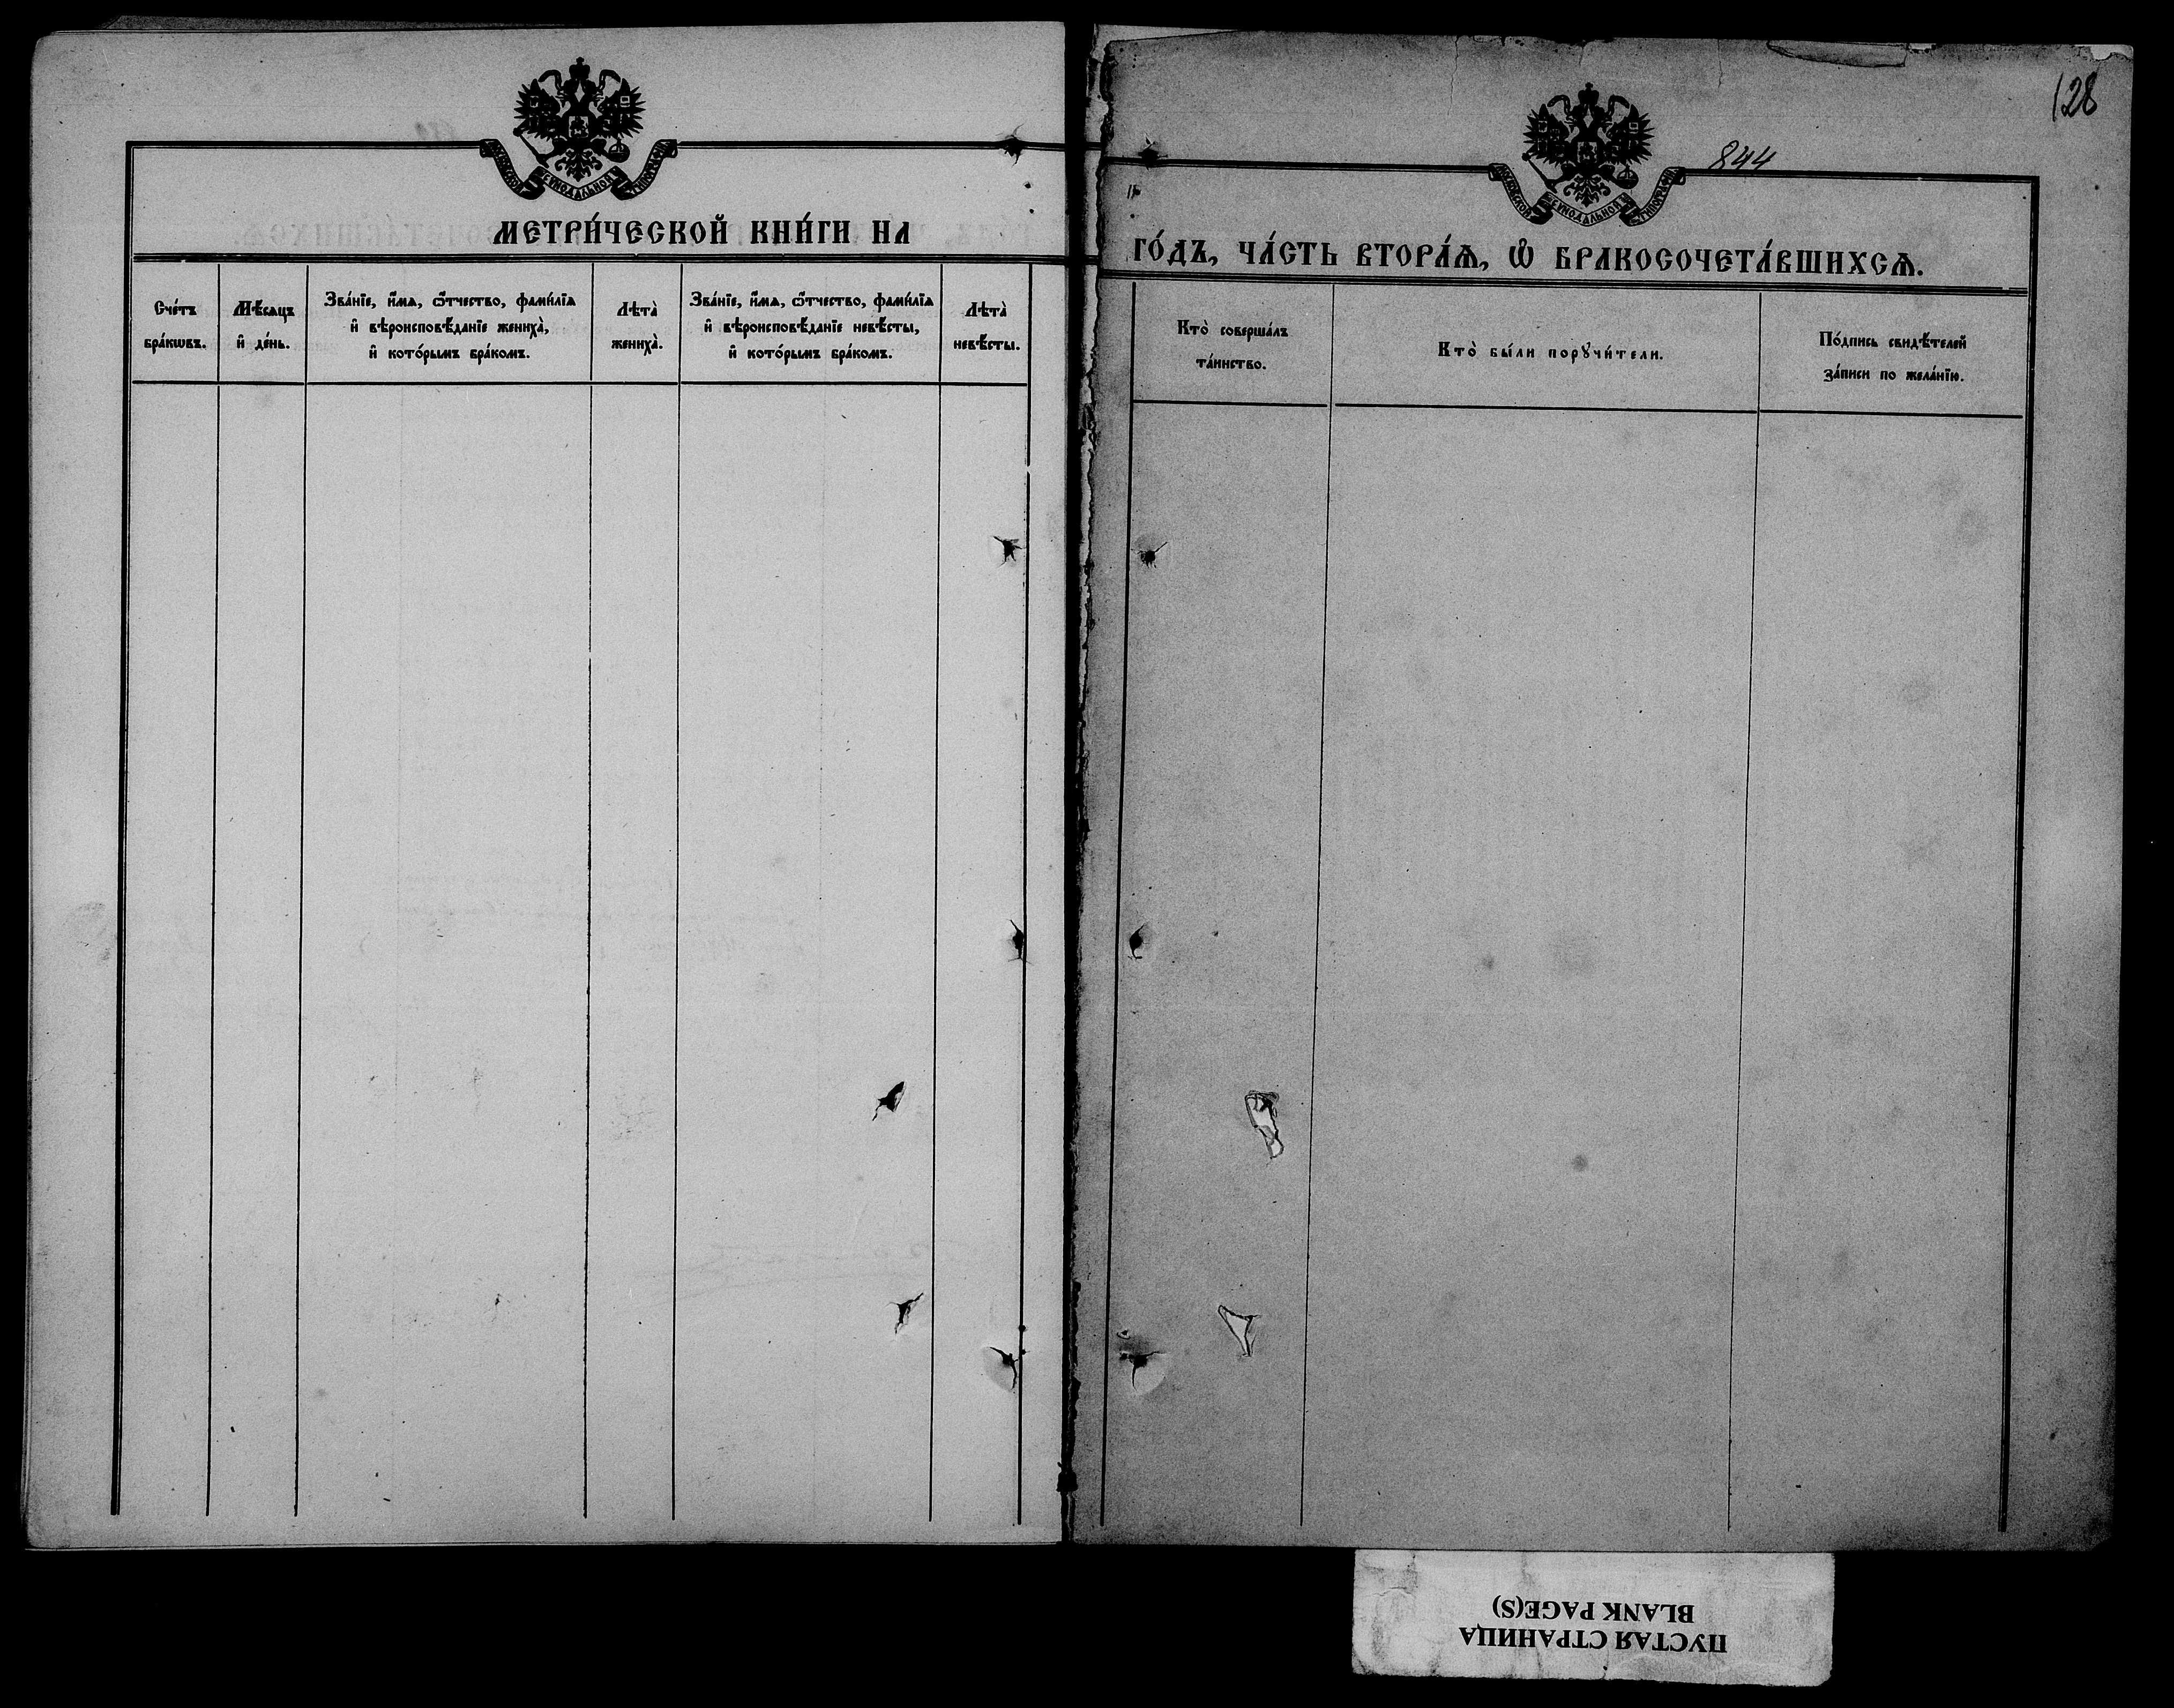 128
844
МЕТРИ́ЧЕСКОЙ КНИ́ГИ НА
ГО́ДЪ, ЧА́СТЬ ВТОРА́Ѧ, Ѡ҆ БРАКОСОЧЕТА́ВШИХСѦ.
Сче́тъ
бра́кѡвъ.
Мѣ́сяцъ
и҆ де́нь.
Зва́нїе, и҆́мѧ, ѻ҆́тчество, фами́лїѧ
и҆ вѣроисповѣ́данїе жениха̀,
и҆ кото́рымъ бра́комъ.
Лѣта̀
жениха̀.
Зва́нїе, и҆́мѧ, ѻ҆́тчество, фами́лїѧ
и҆ вѣроисповѣ́данїе невѣ́сты,
и҆ кото́рымъ бра́комъ.
Лѣта̀
невѣ́сты.
Кто̀ соверша́лъ
та́инство.
Кто̀ бы́ли порꙋчи́тели.
По́дпись свидѣ́телей
за́писи по жела́нїю.
ПУСТАЯ СТРАНИЦА
BLANK PAGE(S)